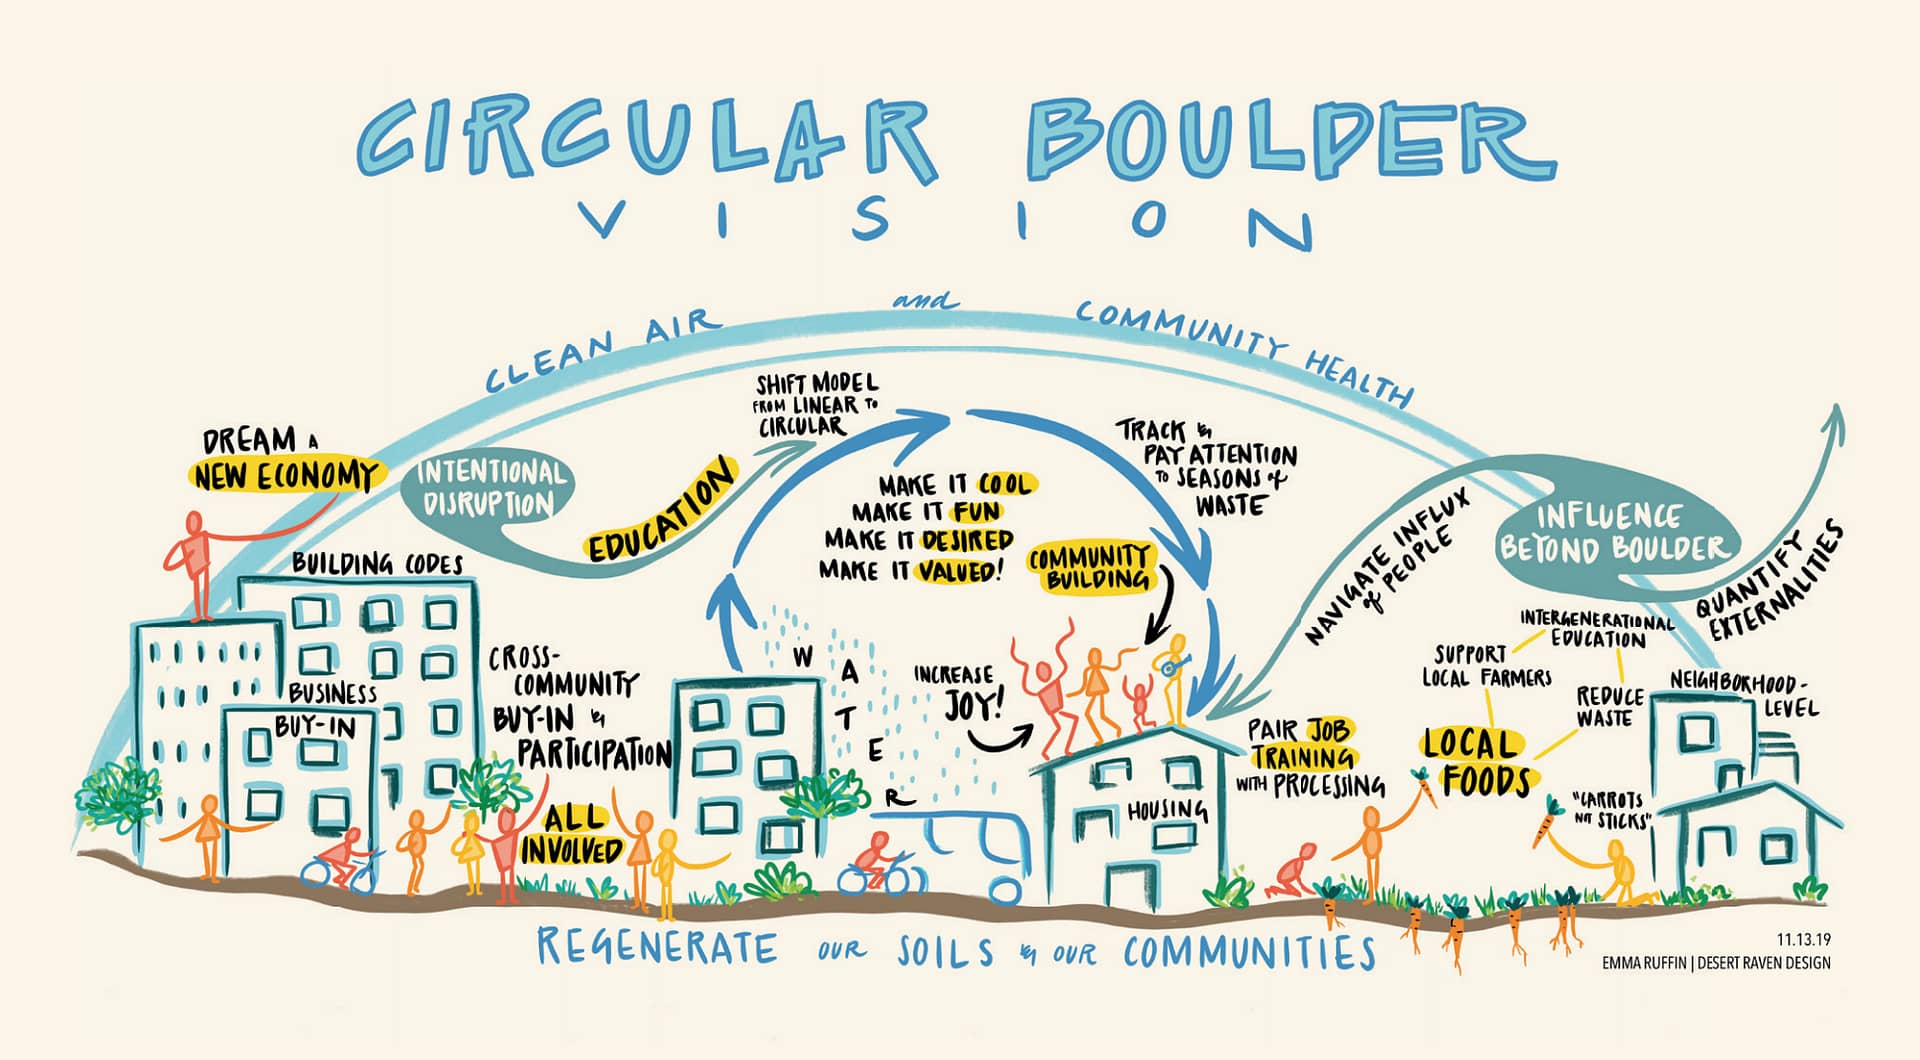 CIRCULAR BOULDER
VISION
CLEAN AIR and COMMUNITY HEALTH
DREAM A
NEW ECONOMY
INTENTIONAL
DISRUPTION
EDUCATION
SHIFT MODEL
FROM LINEAR TO
CIRCULAR
MAKE IT COOL
MAKE IT FUN
MAKE IT DESIRED
MAKE IT VALUED!
COMMUNITY
BUILDING
TRACK &
PAY ATTENTION
TO SEASONS of
WASTE
NAVIGATE INFLUX
of PEOPLE
INFLUENCE
BEYOND BOULDER
QUANTIFY
EXTERNALITIES
BUILDING CODES
BUSINESS
BUY-IN
CROSS-
COMMUNITY
BUY-IN &
PARTICIPATION
ALL
INVOLVED
WATER
INCREASE
JOY!
HOUSING
PAIR JOB
TRAINING
WITH PROCESSING
INTERGENERATIONAL
EDUCATION
SUPPORT
LOCAL FARMERS
REDUCE
WASTE
LOCAL
FOODS
"CARROTS
NOT STICKS"
NEIGHBORHOOD-
LEVEL
REGENERATE OUR SOILS & OUR COMMUNITIES
11.13.19
EMMA RUFFIN | DESERT RAVEN DESIGN